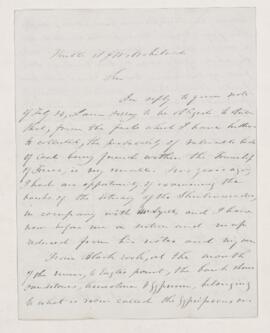 Sir
In reply to your note
of July 24, I am sorry to be obliged to state
that, from the facts which I have hitherto
collected, the probability of valuable beds
of coal being found within the Township
of Truro, is very small. Some years ago
I had an opportunity of examining the
banks of the estuary of the Shubenacadie,
in company with Mr Lyell, and I have
now before me a section and map
reduced from his notes and my own
From Black rock, at the mouth
of the river, to Eagles point, the bank shows
sandstones, limestone & Gypsum, belonging
to what is now called the Gypsiferous or